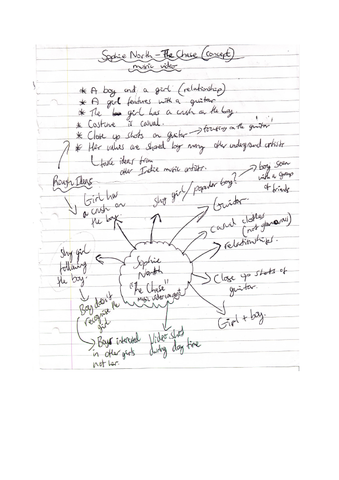 Sophie North - The Chase (concept)
music video
* A boy and a girl (relationship)
* A girl features with a guitar
* The girl has a crush on the boy
* Costume is casual.
* Close up shots on guitar → focusing on the 'guitar'
* Her values are shared by many other underground artists
↳ take ideas from
other Indie music artists.
Rough Ideas
Girl has
a crush on
the boy
shy girl / popular boy?
boy seen
with a group
of friends.
Guitar
Casual clothes
(not glamorous)
relationships.
Close up shots of
guitar.
Girl + boy.
Video shot
during day time
shy girl
following
the boy.
Boy doesn't
recognise the
girl
Boy interested
in other girls
not her.
Sophie
North
"The Chase"
music video concept